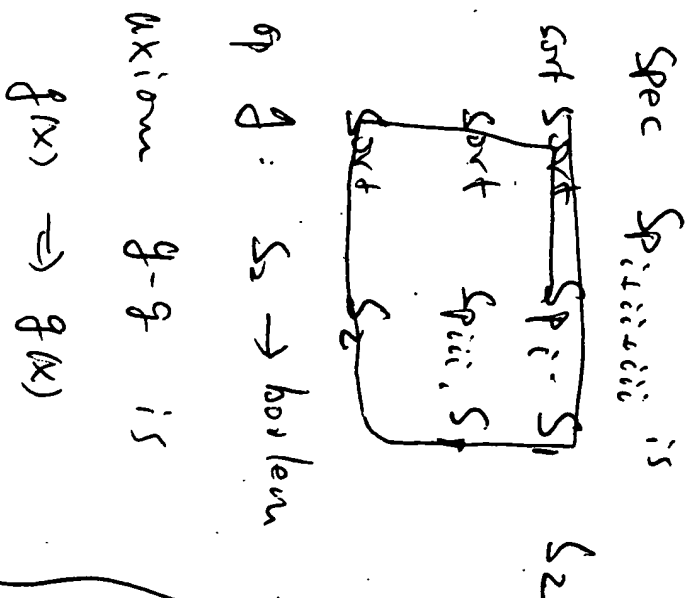 Spec Spi+ii+iii is
Sort Spi-S1 S2
Sort Spiii.S
Sort S2
op g: S2 → boolean
axiom g-g is
g(x) ⇒ g(x)